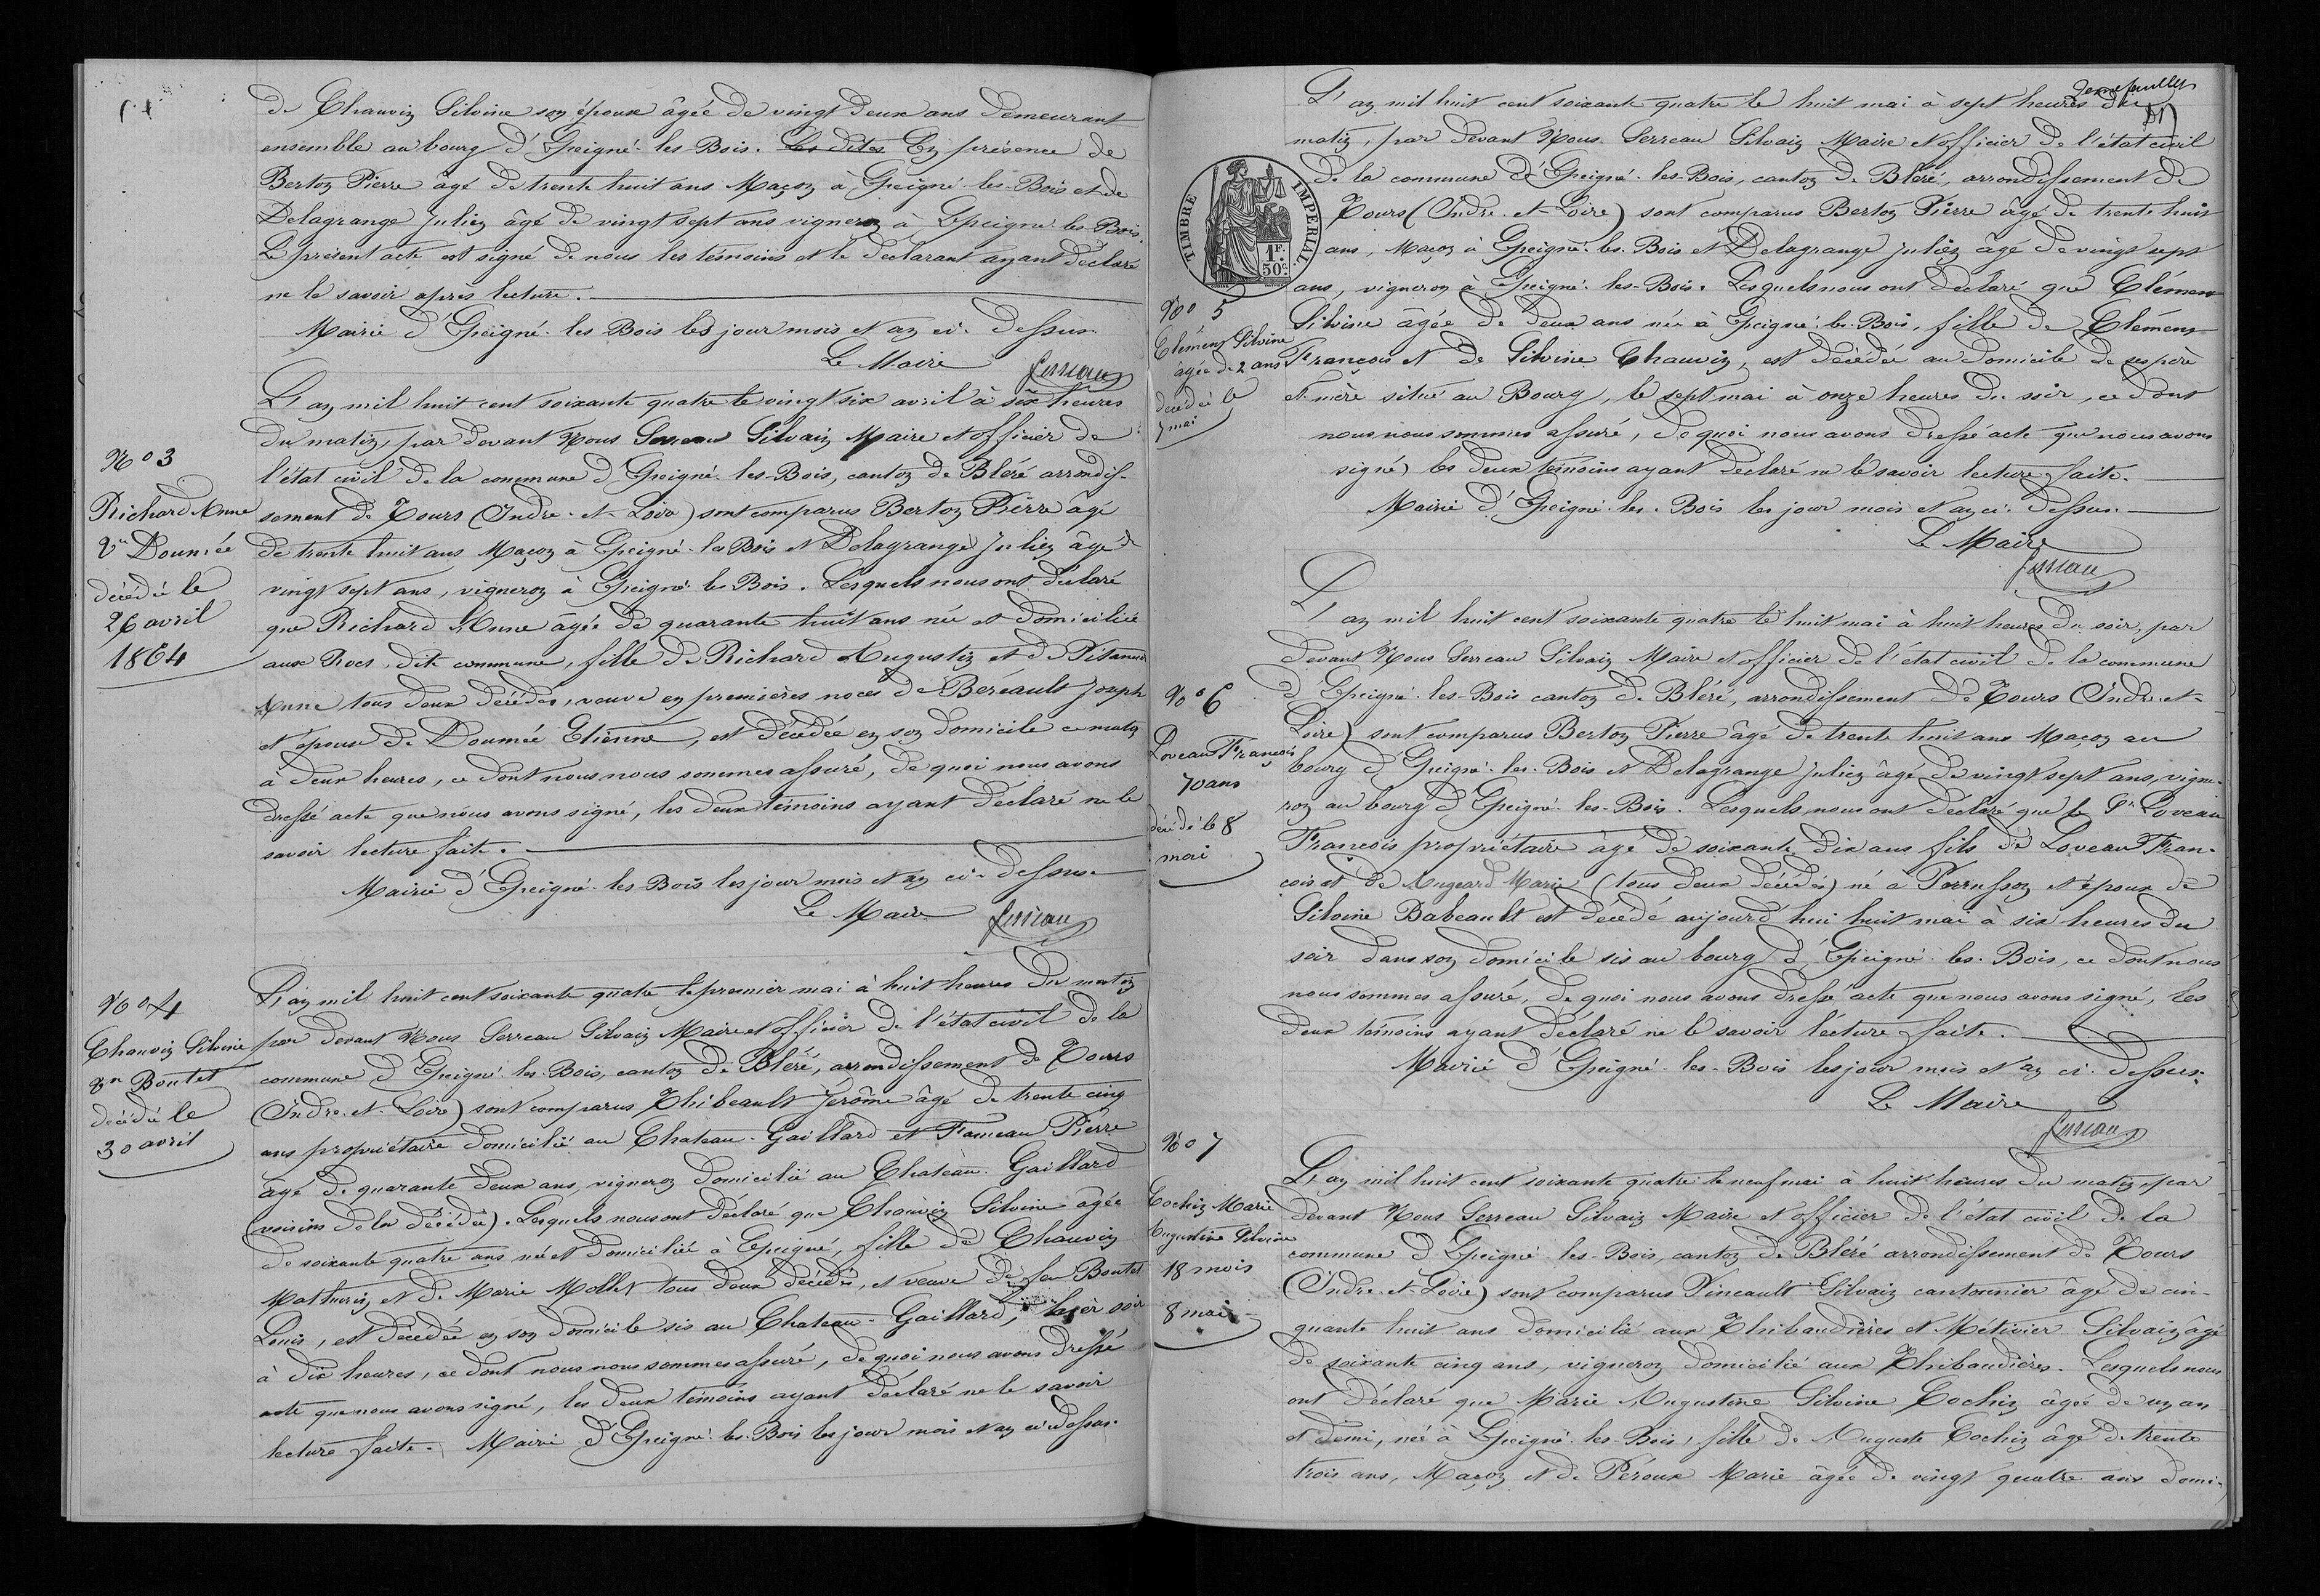 de Chauvin Silvine son épouse âgée de vingt deux ans demeurant
ensemble au bourg d'Epeigné-les-Bois. Les dites En présence de
Berton Pierre âgé de trente huit ans Maçon à Epeigné-les-Bois et de
Delagrange Julien âgé de vingt sept ans vigneron à Epeigné-les-Bois.
Le présent acte est signé de nous les témoins et le déclarant ayant déclaré
ne le savoir après lecture.
Mairie d'Epeigné-les-Bois les jour mois et an ci-dessus
Le Maire
Serreau
No 3
Richard Anne
Ve Doumée
décédée le
26 avril
1864
L'an mil huit cent soixante quatre le vingt six avril à six heures
du matin, par devant Nous Serreau Silvain Maire et officier de
l'état civil de la commune d'Epeigné-les-Bois, canton de Bléré arrondis-
sement de Tours (Indre-et-Loire) sont comparus Berton Pierre âgé
de trente huit ans Maçon à Epeigné-les-Bois et Delagrange Julien âgé de
vingt sept ans, vigneron à Epeigné-les-Bois. Lesquels nous ont déclaré
que Richard Anne âgée de quarante huit ans née et domiciliée
aux Rocs, dite commune, fille de Richard Augustin et de
Anne tous deux décédés, veuve en premières noces de Béreault Joseph
et épouse de Doumée Etienne, est décédée en son domicile ce matin
à deux heures, ce dont nous nous sommes assuré, de quoi nous avons
dressé acte que nous avons signé, les deux témoins ayant déclaré ne le
savoir lecture faite.
Mairie d'Epeigné-les-Bois les jour mois et an ci-dessus
Le Maire
Serreau
No 4
Chauvin Silvine
Ve Boutet
décédée le
30 avril
L'an mil huit cent soixante quatre le premier mai à huit heures du matin
par devant Nous Serreau Silvain Maire et officier de l'état civil de la
commune d'Epeigné-les-Bois, canton de Bléré, arrondissement de Tours
(Indre-et-Loire) sont comparus Thibeault Jérôme âgé de trente cinq
ans propriétaire domicilié au Chateau-Gaillard et Fameau Pierre
âgé de quarante deux ans, vigneron domicilié au Chateau-Gaillard
(voisins de la décédée). Lesquels nous ont déclaré que Chauvin Silvine âgée
de soixante quatre ans née et domiciliée à Epeigné, fille de Chauvin
Mathurin et de Marie Mollet tous deux décédés, et veuve de feu Boutet
Louis, est décédée en son domicile sis au Chateau-Gaillard, hier soir
à dix heures, ce dont nous nous sommes assuré, de quoi nous avons dressé
acte que nous avons signé, les deux témoins ayant déclaré ne le savoir
lecture faite. Mairie d'Epeigné-les-Bois les jour mois et an ci-dessus.
TIMBRE IMPÉRIAL
1F.
50c.
No 5
Clémens Silvine
agée de 2 ans
décédée le
7 mai
L'an mil huit cent soixante quatre le huit mai à sept heures du
matin, par devant Nous Serreau Silvain Maire et officier de l'état civil
de la commune d'Epeigné-les-Bois, canton de Bléré, arrondissement de
Tours (Indre-et-Loire) sont comparus Berton Pierre âgé de trente huit
ans, Maçon à Epeigné-les-Bois et Delagrange Julien âgé de vingt sept
ans, vigneron à Epeigné-les-Bois. Lesquels nous ont déclaré que Clémens
Silvine âgée de deux ans née à Epeigné-les-Bois, fille de Clémens
François et de Silvine Chauvin, est décédée au domicile de ses père
et mère situé au Bourg, le sept mai à onze heures du soir, ce dont
nous nous sommes assuré, de quoi nous avons dressé acte que nous avons
signé, les deux témoins ayant déclaré ne le savoir lecture faite.
Mairie d'Epeigné-les-Bois les jour mois et an ci-dessus
Le Maire
Serreau
No 6
Loveau François
70 ans
décédé le 8
mai
L'an mil huit cent soixante quatre le huit mai à huit heures du soir, par
devant Nous Serreau Silvain Maire et officier de l'état civil de la commune
d'Epeigné-les-Bois canton de Bléré, arrondissement de Tours (Indre-et-
Loire) sont comparus Berton Pierre âgé de trente huit ans Maçon au
bourg d'Epeigné-les-Bois et Delagrange Julien âgé de vingt sept ans, vigne-
ron au bourg d'Epeigné-les-Bois. Lesquels nous ont déclaré que le Sr Loveau
François propriétaire âgé de soixante dix ans fils de Loveau Fran-
çois et de Augeard Marie (tous deux décédés) né à Perrusson et époux de
Silvine Babeault est décédé aujourd'hui huit mai à six heures du
soir dans son domicile sis au bourg d'Epeigné-les-Bois, ce dont nous
nous sommes assuré, de quoi nous avons dressé acte que nous avons signé, les
deux témoins ayant déclaré ne le savoir lecture faite.
Mairie d'Epeigné-les-Bois les jour mois et an ci-dessus
Le Maire
Serreau
No 7
Cochin Marie
Augustine Silvine
18 mois
8 mai
L'an mil huit cent soixante quatre le neuf mai à huit heures du matin, par
devant Nous Serreau Silvain Maire et officier de l'état civil de la
commune d'Epeigné-les-Bois, canton de Bléré arrondissement de Tours
(Indre-et-Loire) sont comparus Pineault Silvain cantonnier âgé de cin-
quante huit ans domicilié aux Thibaudières et Métivier Silvain âgé
de soixante cinq ans, vigneron domicilié aux Thibaudières. Lesquels nous
ont déclaré que Marie Augustine Silvine Cochin âgée de un an
et demi, née à Epeigné-les-Bois, fille de Auguste Cochin âgé de trente
trois ans, Maçon et de Péroux Marie âgée de vingt quatre ans domi-